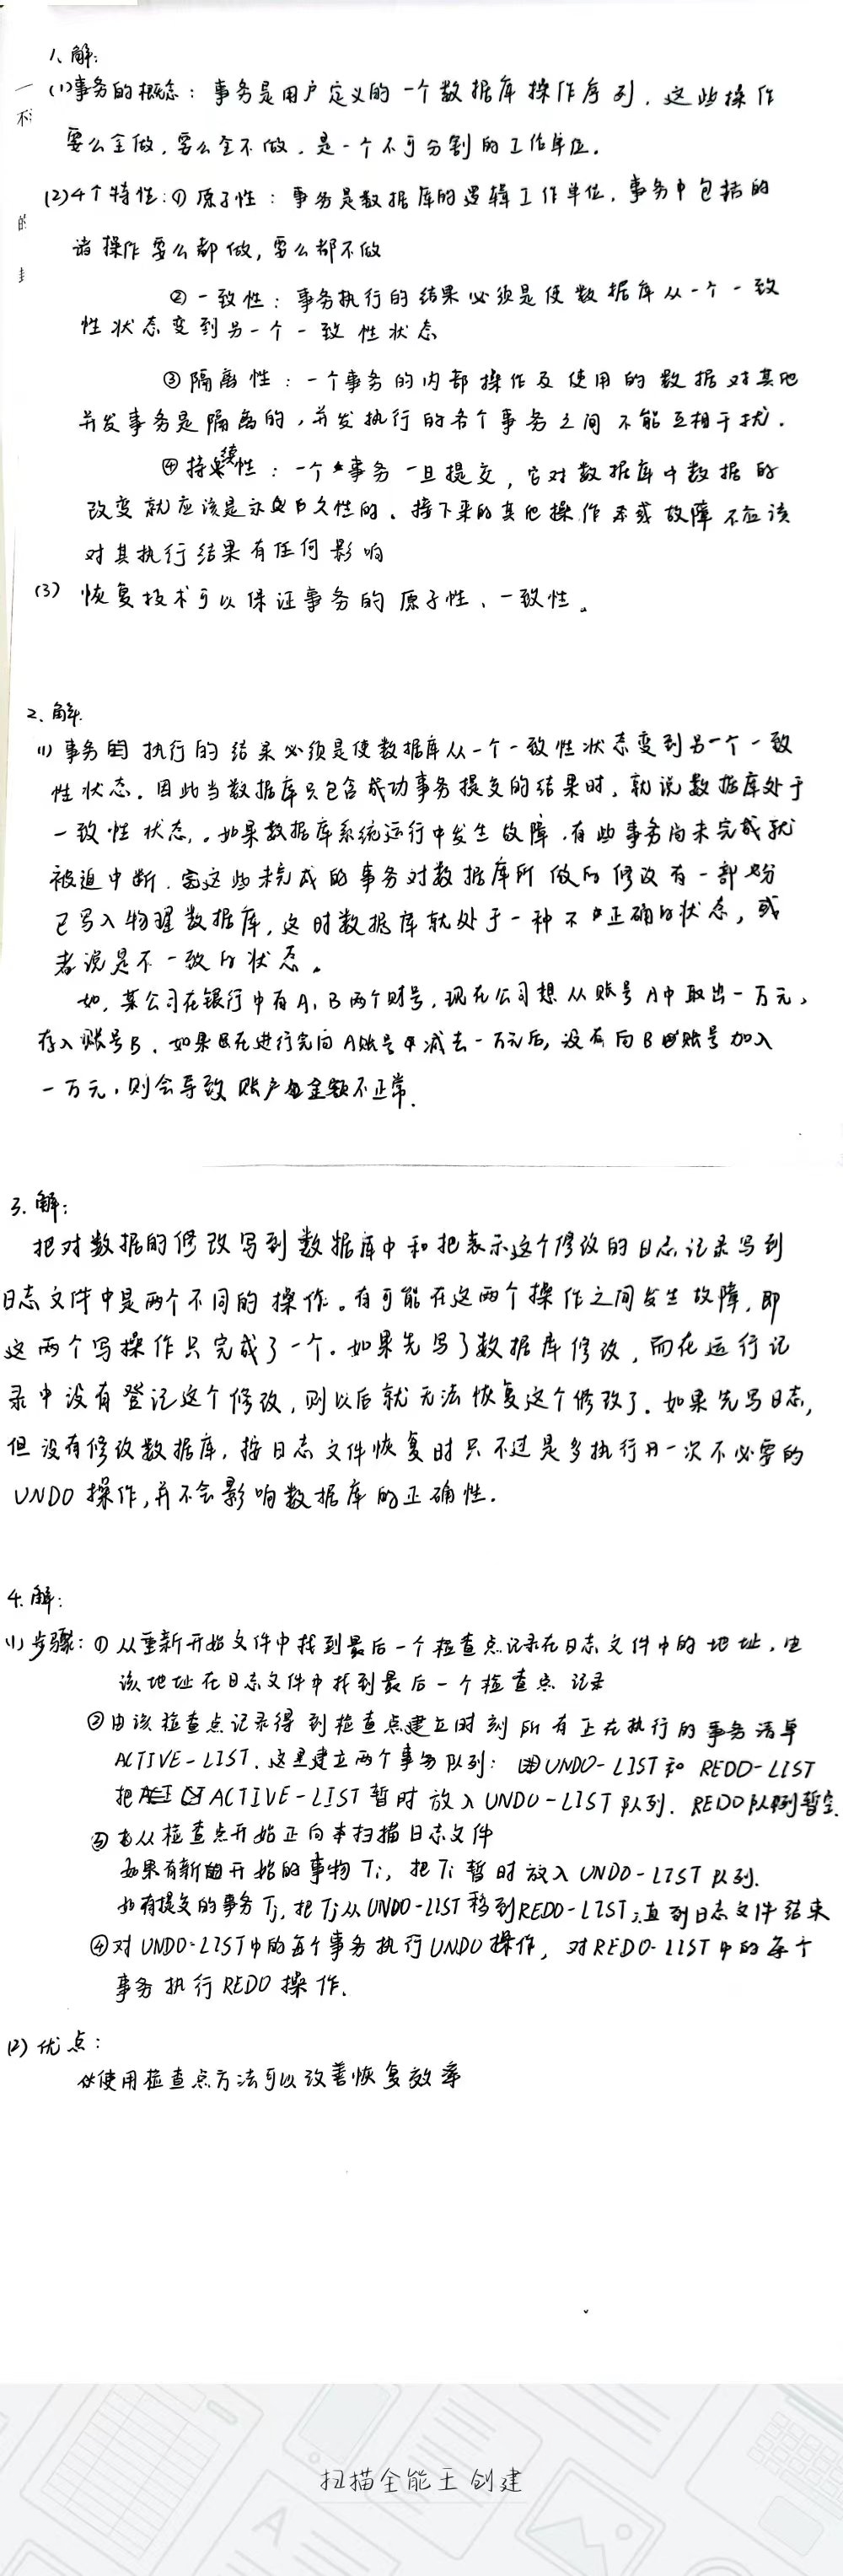 1、解:
一
(1)事务的概念：事务是用户定义的一个数据库操作序列，这些操作
不
要么全做，要么全不做，是一个不可分割的工作单位。
(2)4个特性:① 原子性：事务是数据库的逻辑工作单位，事务中包括的
的
诸操作要么都做，要么都不做
② 一致性：事务执行的结果必须是使数据库从一个一致
性状态变到另一个一致性状态
③ 隔离性：一个事务的内部操作及使用的数据对其他
并发事务是隔离的，并发执行的各个事务之间不能互相干扰.
④ 持续性：一个事务一旦提交，它对数据库中数据的
改变就应该是永久性的。接下来的其他操作或故障不应该
对其执行结果有任何影响
(3) 恢复技术可以保证事务的原子性、一致性。
2、解.
(1) 事务执行的结果必须是使数据库从一个一致性状态变到另一个一致
性状态。因此当数据库只包含成功事务提交的结果时，就说数据库处于
一致性状态。如果数据库系统运行中发生故障，有些事务尚未完成就
被迫中断，这些未完成的事务对数据库所做的修改有一部分
已写入物理数据库，这时数据库就处于一种不正确的状态，或
者说是不一致的状态。
如，某公司在银行中有A、B两个账号，现在公司想从账号A中取出一万元，
存入账号B，如果在进行完向A账号减去一万元后，没有向B账号加入
一万元，则会导致账户金额不正常.
3. 解:
把对数据的修改写到数据库中和把表示这个修改的日志记录写到
日志文件中是两个不同的操作。有可能在这两个操作之间发生故障，即
这两个写操作只完成了一个。如果先写了数据库修改，而在运行记
录中没有登记这个修改，则以后就无法恢复这个修改了。如果先写日志，
但没有修改数据库，按日志文件恢复时只不过是多执行一次不必要的
UNDO 操作，并不会影响数据库的正确性.
4. 解:
(1) 步骤: ① 从重新开始文件中找到最后一个检查点记录在日志文件中的地址，由
该地址在日志文件中找到最后一个检查点记录
② 由该检查点记录得到检查点建立时刻所有正在执行的事务清单
ACTIVE-LIST. 这里建立两个事务队列: UNDO-LIST和 REDO-LIST
把 ACTIVE-LIST 暂时放入 UNDO-LIST 队列. REDO队列暂空.
③ 从检查点开始正向扫描日志文件
如果有新开始的事物 Ti，把 Ti 暂时放入 UNDO-LIST 队列.
如有提交的事务 Tj，把 Tj从UNDO-LIST 移到REDO-LIST;直到日志文件结束
④对 UNDO-LIST中的每个事务执行UNDO操作，对REDO-LIST中的每个
事务执行REDO 操作.
(2) 优点:
使用检查点方法可以改善恢复效率
扫描全能王 创建